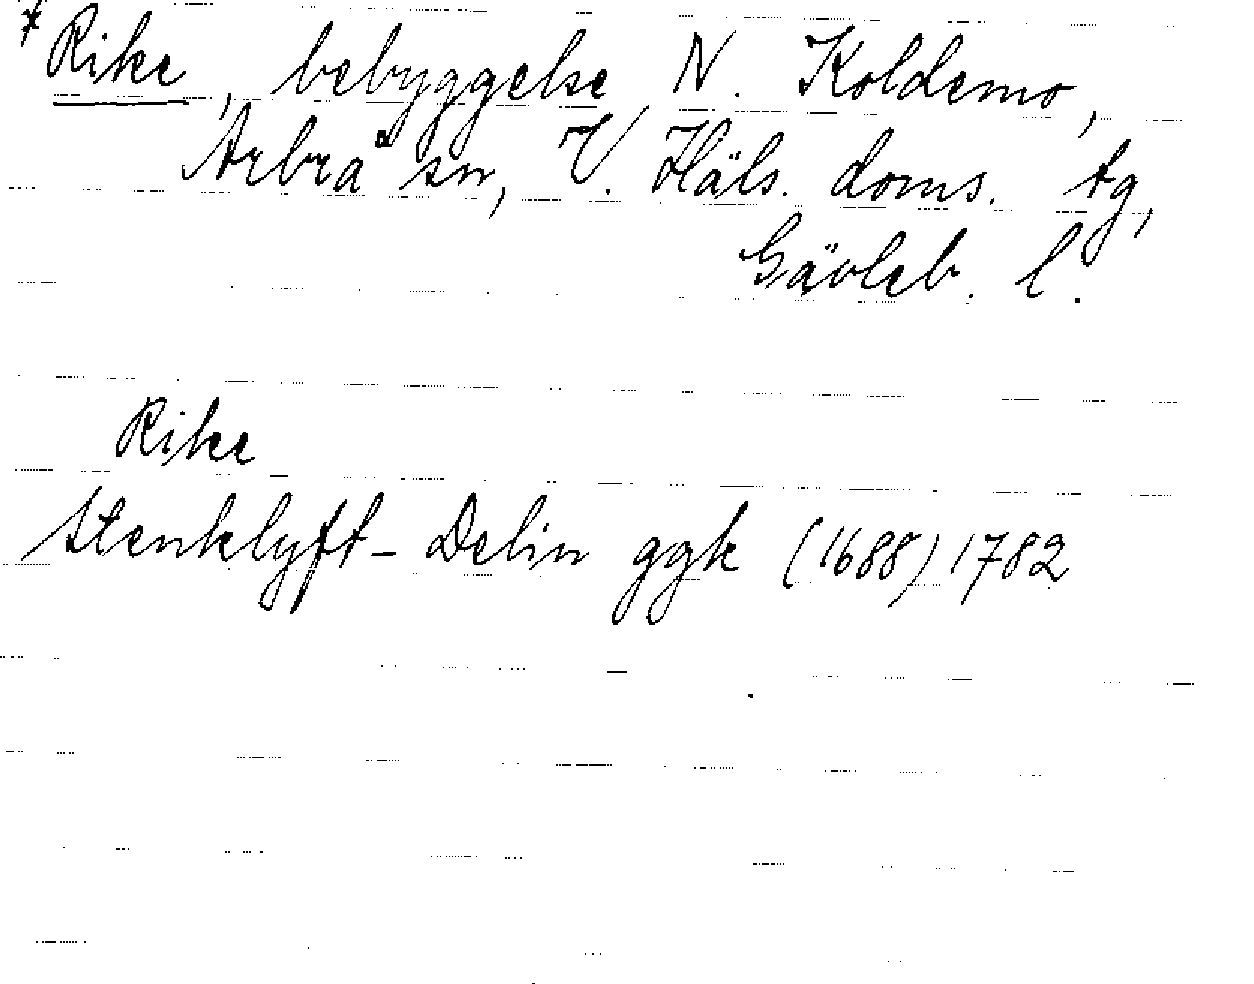 * Rike, bebyggelse, N. Koldemo,
Arbrå sn, V. Häls. doms. tg,
Gävleb. l.
Rike
Stenklyft - Delin ggk (1688) 1782